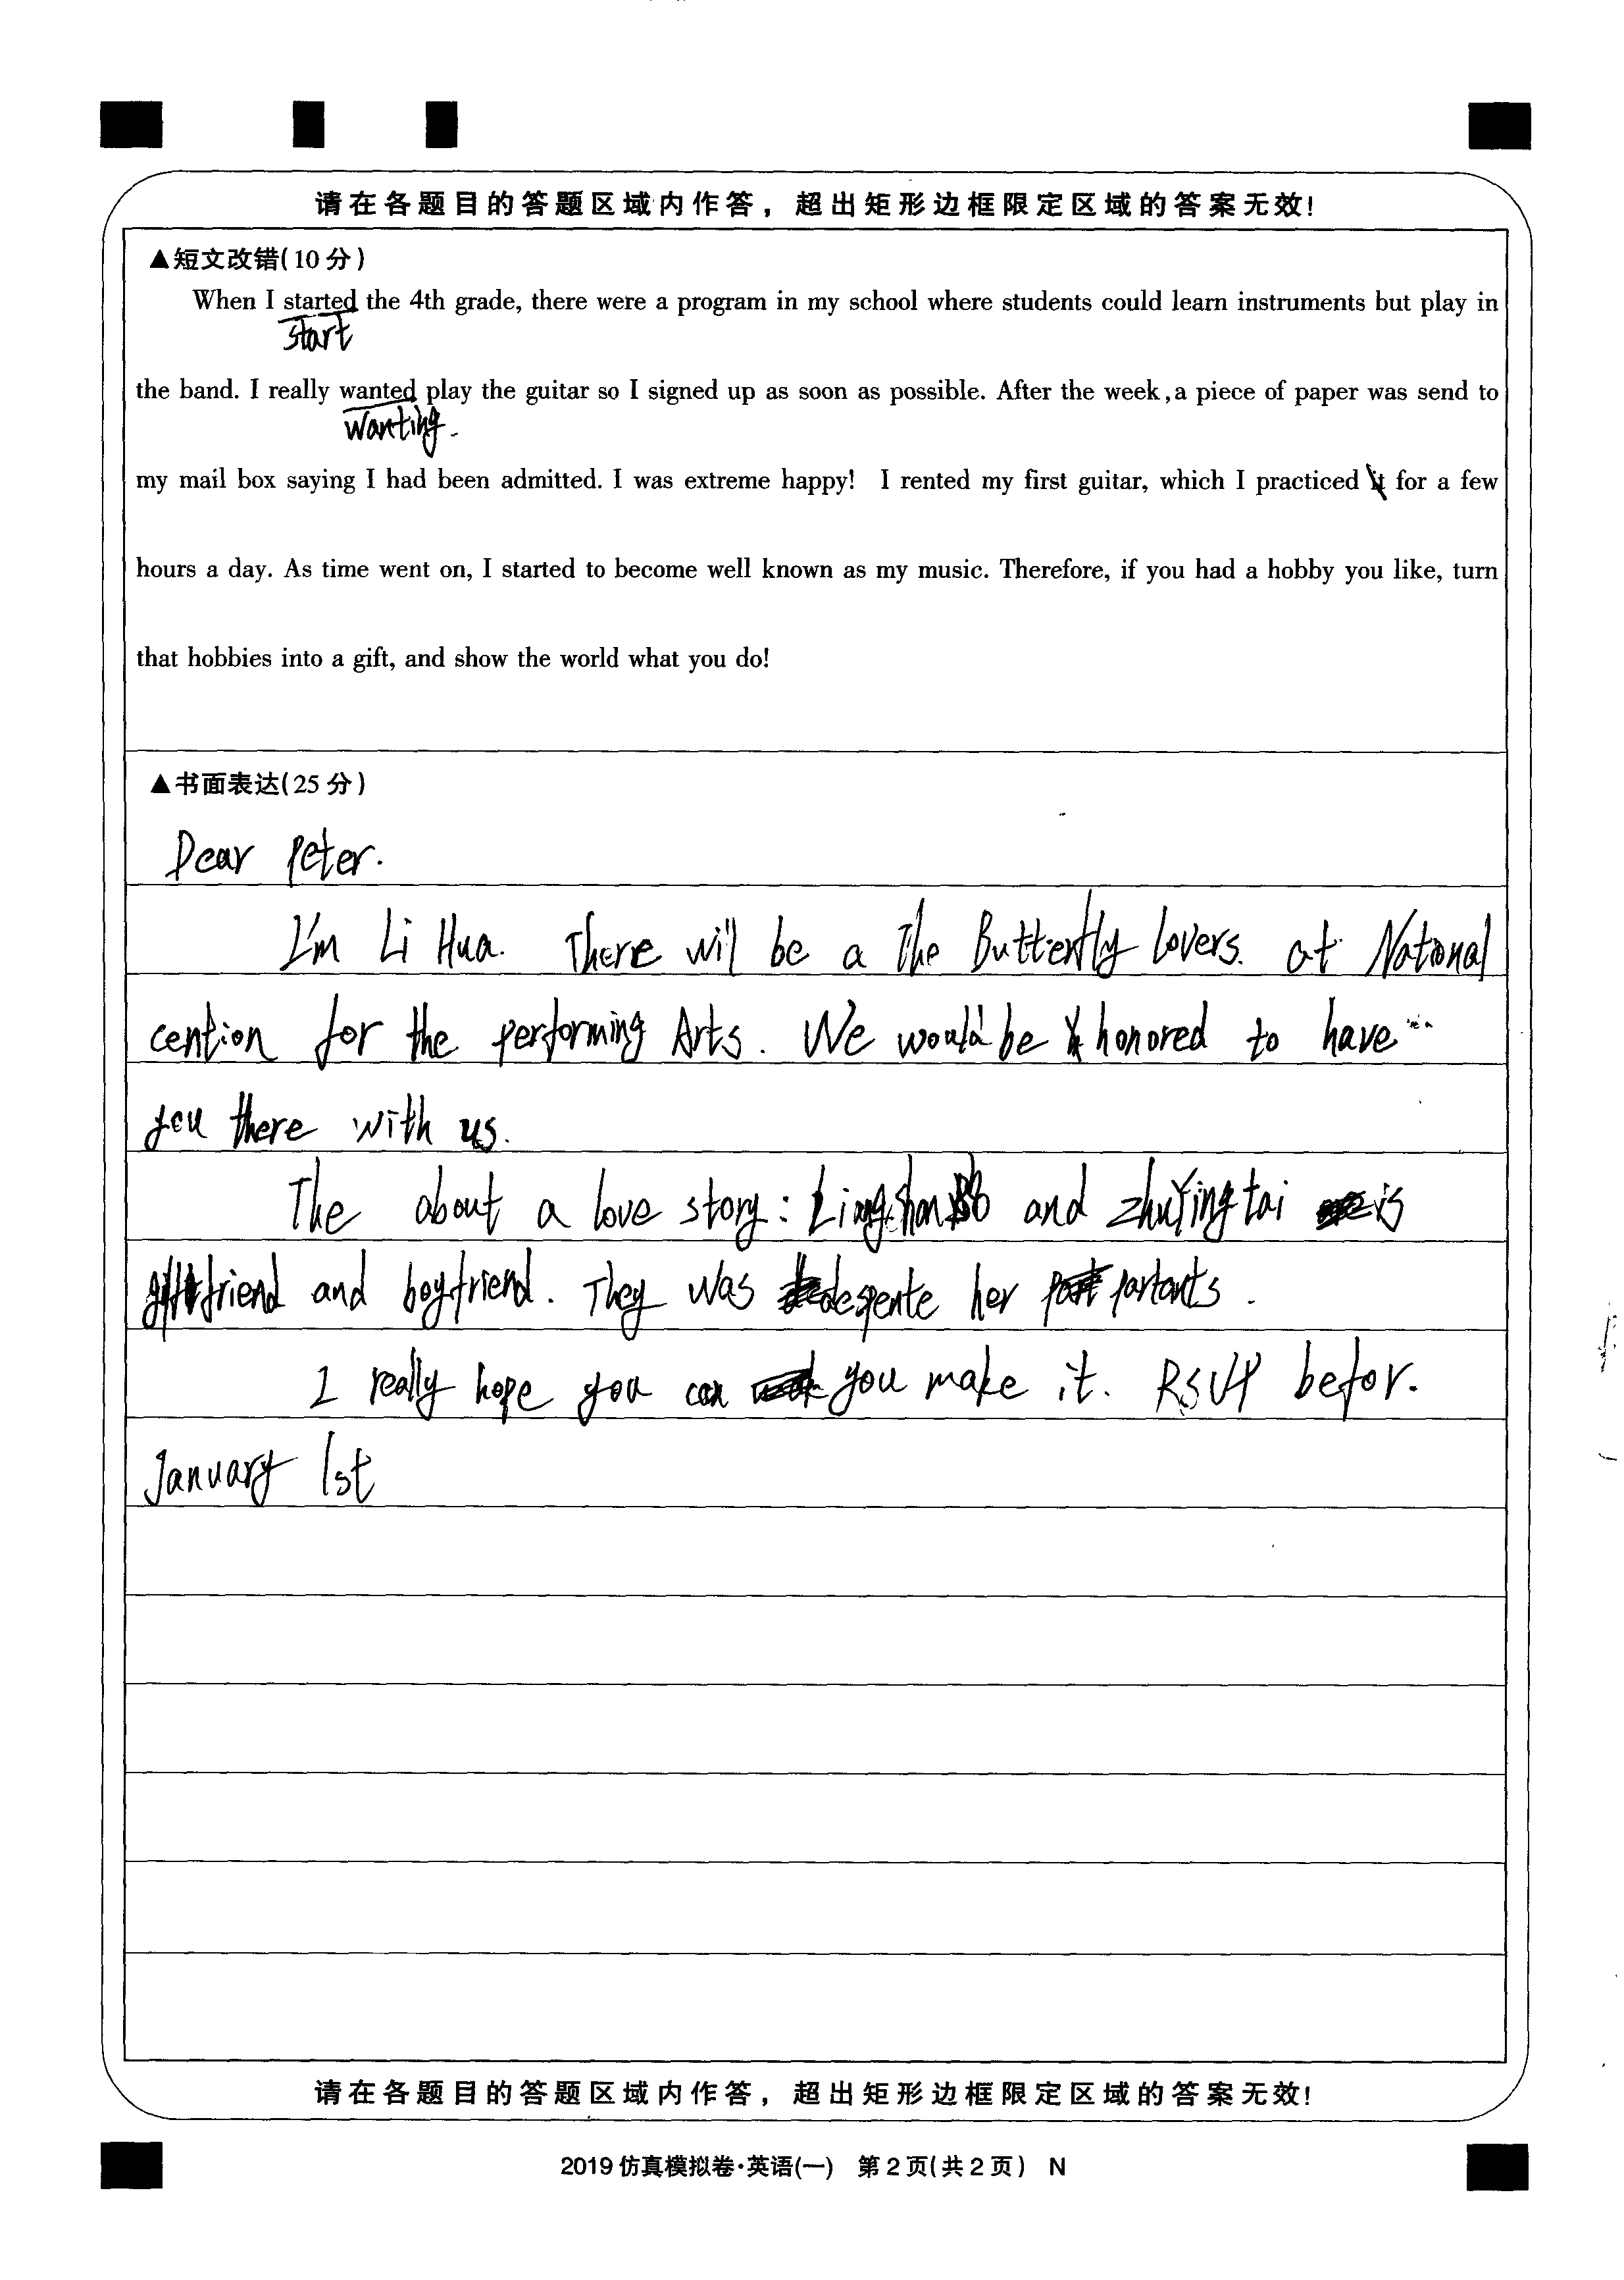 请在各题目的答题区域内作答，超出矩形边框限定区域的答案无效!
▲短文改错(10分)
When I started the 4th grade, there were a program in my school where students could learn instruments but play in
start
the band. I really wanted play the guitar so I signed up as soon as possible. After the week, a piece of paper was send to
wanting.
my mail box saying I had been admitted. I was extreme happy! I rented my first guitar, which I practiced it for a few
hours a day. As time went on, I started to become well known as my music. Therefore, if you had a hobby you like, turn
that hobbies into a gift, and show the world what you do!
▲书面表达(25分)
Dear Peter.
I'm Li Hua. There will be a The Butterfly lovers. at National
cention for the performing Arts. We would be honored to have
you there with us.
The about a love story: and zhuYingtai is
friend and boyfriend. They was her partants.
I really hope you can you make it. RSVP befor.
January 1st
请在各题目的答题区域内作答，超出矩形边框限定区域的答案无效!
2019仿真模拟卷·英语(一) 第2页(共2页) N